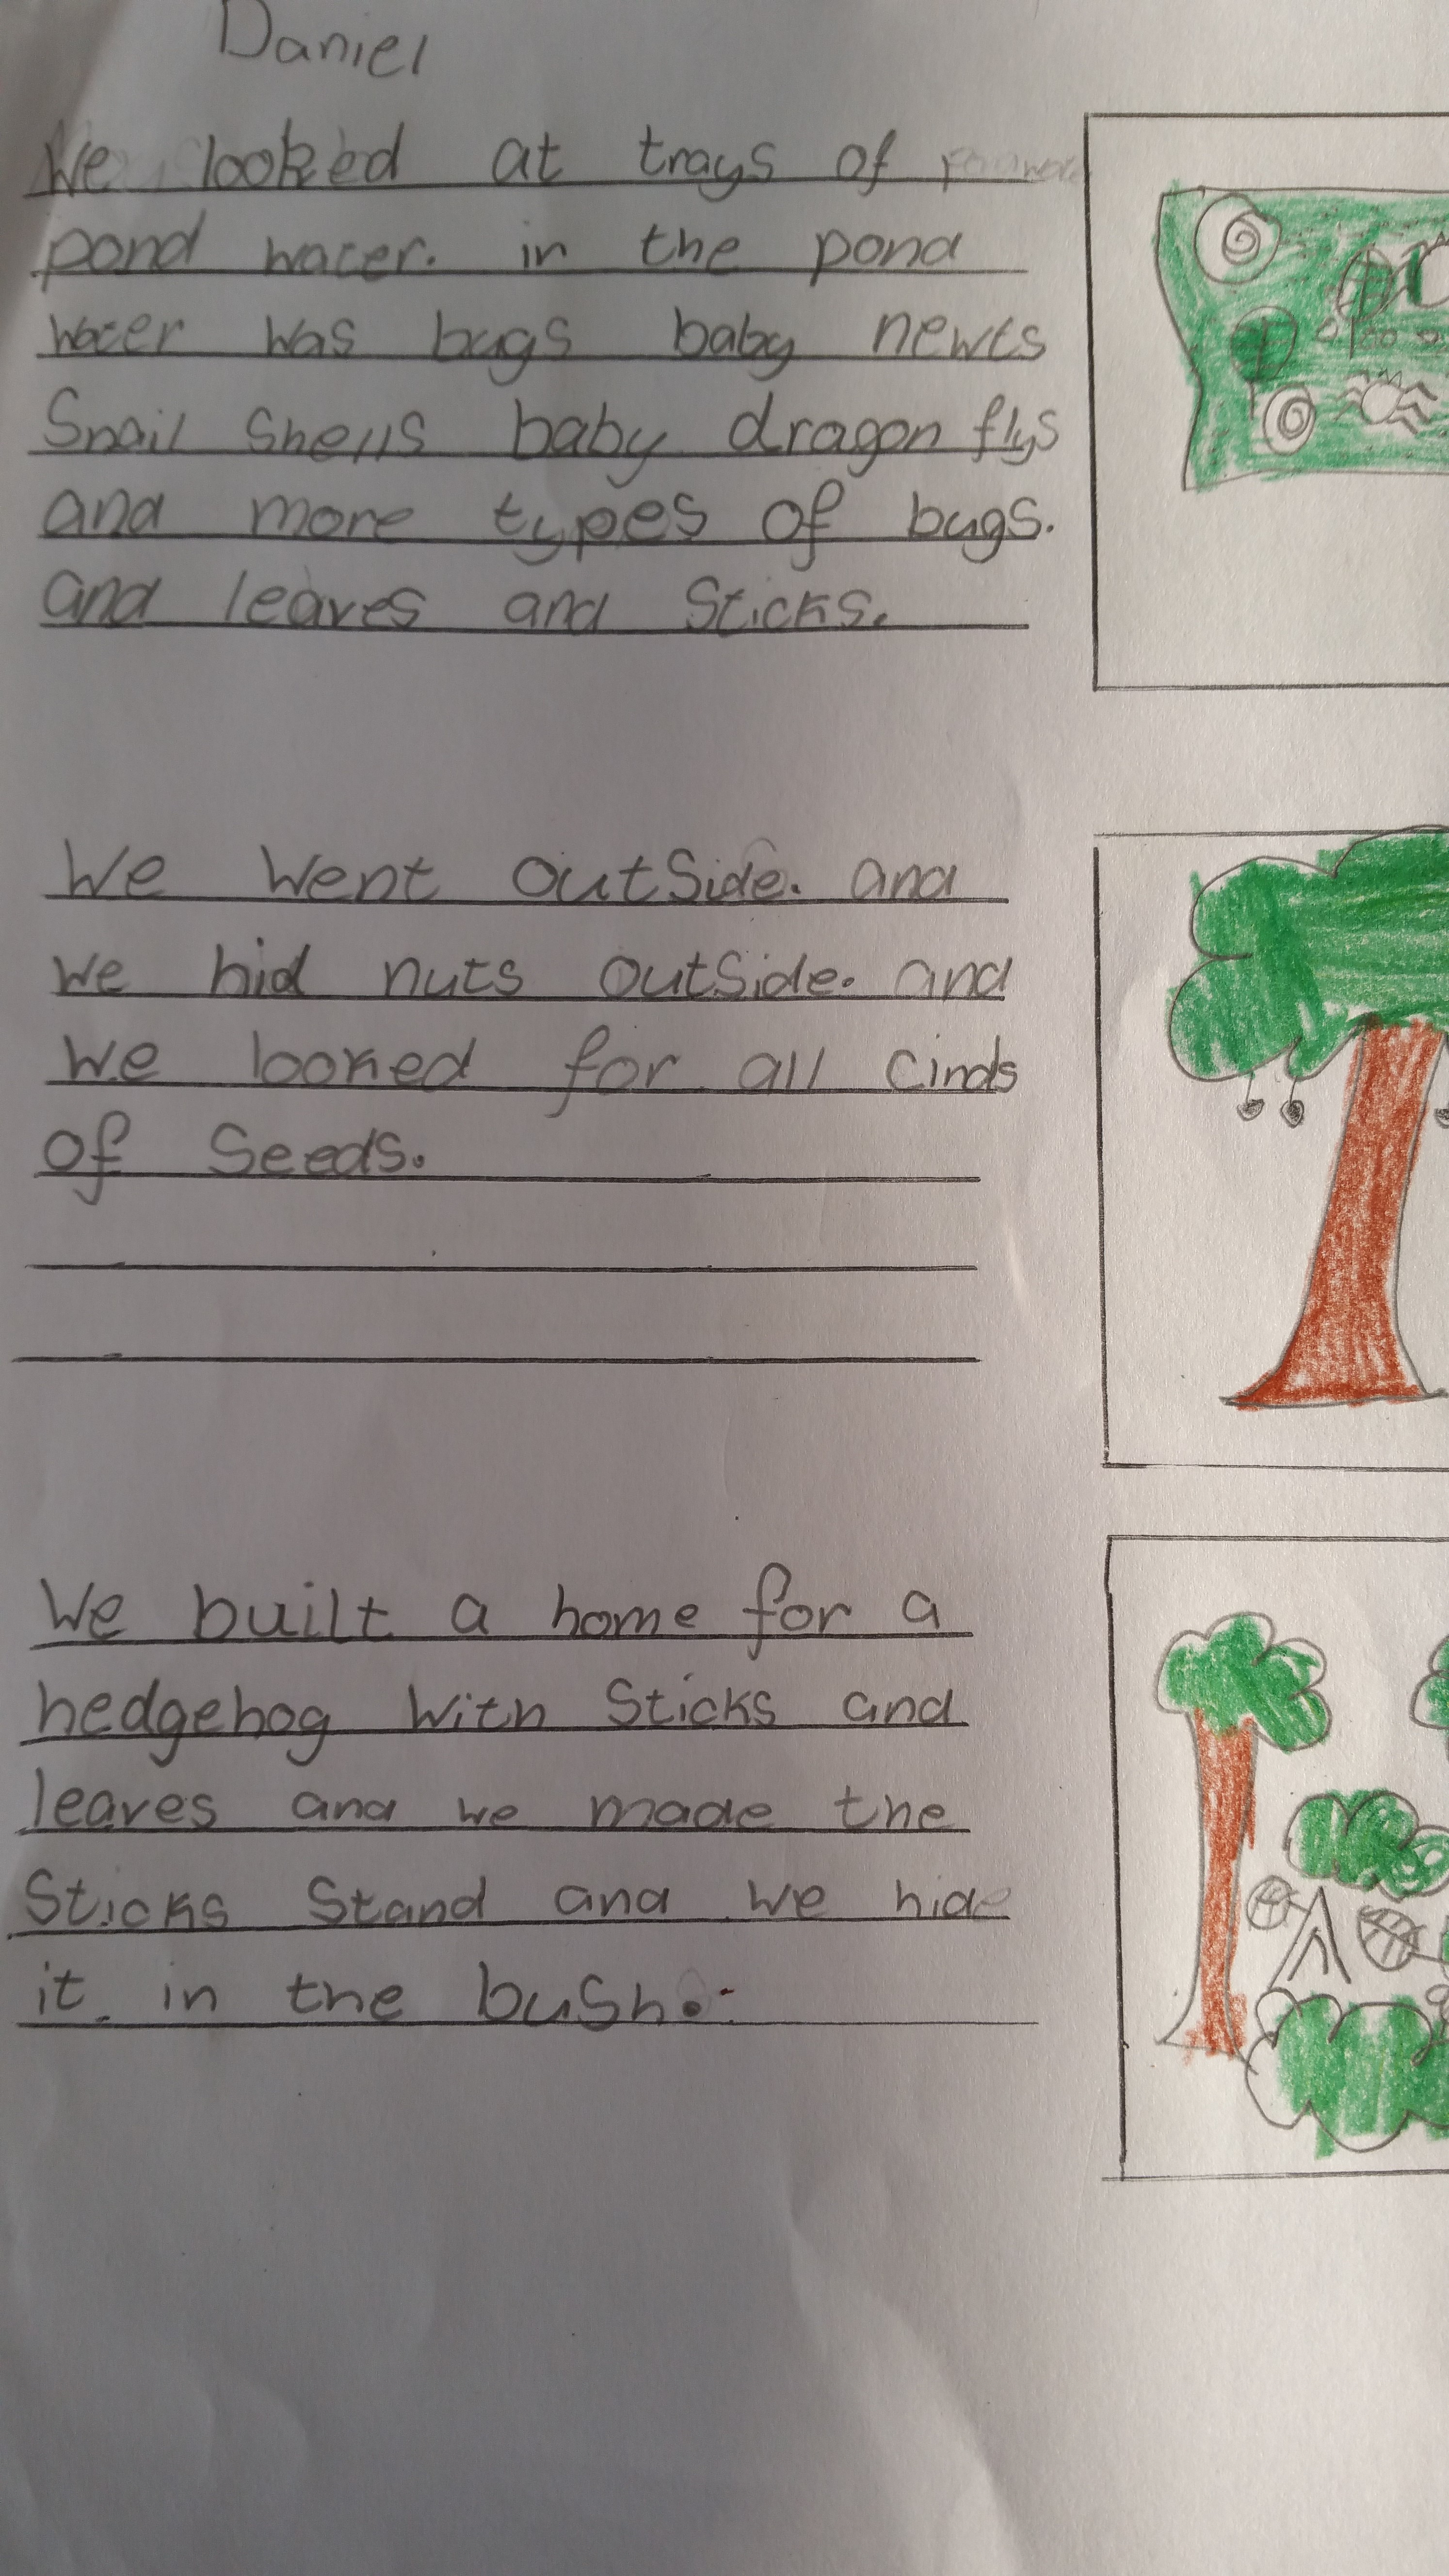 Daniel
We looked at trays of
pond water. in the pond
water was bugs baby newts
Snail Shells baby dragon flys
and more types of bugs.
and leaves and Sticks.
We Went outSide. and
we hid nuts outSide. and
we looked for all cinds
of Seeds.
We built a home for a
hedgehog With Sticks and
leaves and we made the
Sticks Stand and we hide
it in the buSh.